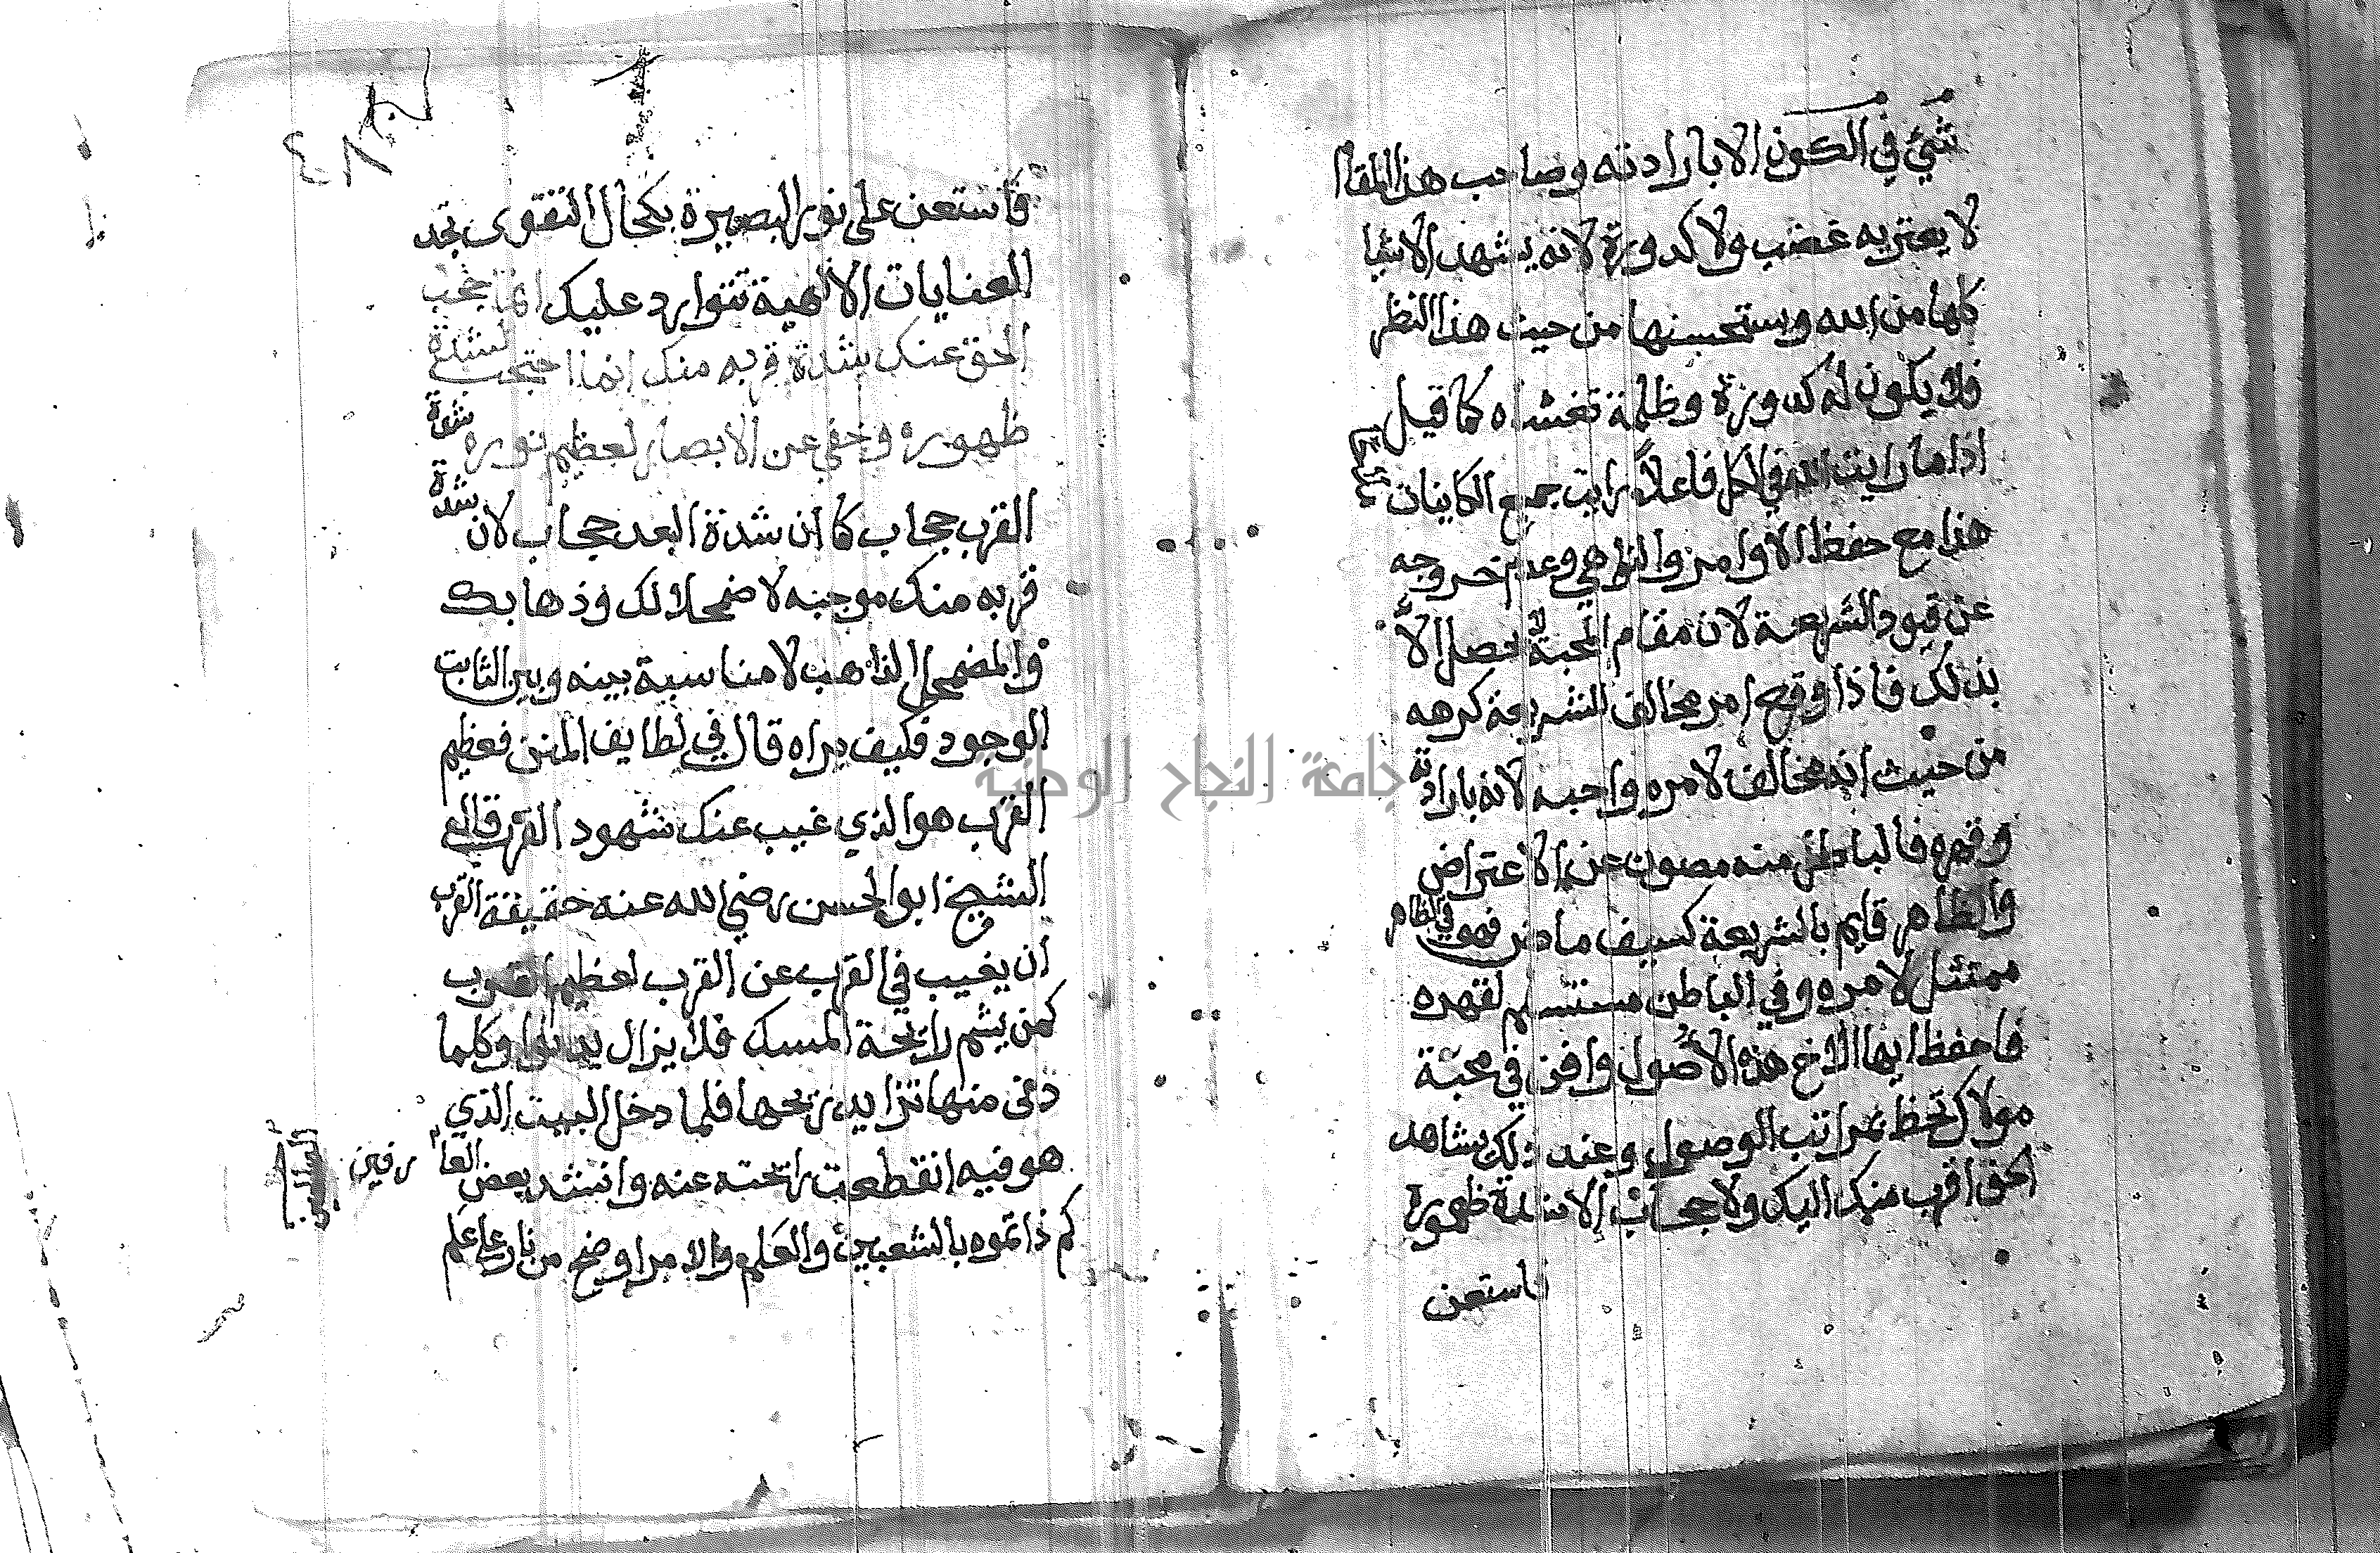 شيء في الكون الا بارادته وصاحب هذا المقام
لا يعتريه غضب ولا كدورة لانه يشهد الاشيا
كلها من الله ويستحسنها من حيث هذا النظر
فلا يكون له كدورة وظلمة تغشاه كما قيل
اذا ما رايت الله في الكل فاعلا رايت جميع الكاينات
هذا مع حفظ الاوامر والنواهي وعدم خروجه
عن قيود الشريعة لان مقام المحبة لا يحصل الا
بذلك فاذا وقع امر مخالف للشريعة كرهه
من حيث انه مخالف لامره واحبه لانه بارادته
وقهره فالباطن منه مصون عن الاعتراض
والظاهر قايم بالشريعة كسيف ماض فهو في الظاهر
ممتثل لامره وفي الباطن مستسلم لقهره
فاحفظ ايها الاخ هذه الاصول وافن في محبة
مولاك تحظ بمراتب الوصول وعند ذلك يشاهد
الحق اقرب منك اليك ولا حجاب الا شدة ظهوره
فاستعن
فاستعن على نور البصيرة بكحال التقوى تجد
العنايات الالهية تتوارد عليك انما حجب
الحق عنك شدة قربه منك انما احتجب لشدة
ظهوره وخفي عن الابصار لعظيم نوره شدة
القرب حجاب كما ان شدة البعد حجاب لان شدة
قربه منك موجبه لاضمحلالك وذهابك
والمضمحل الذاهب لا مناسبة بينه وبين الثابت
الوجود فكيف يراه قال في لطايف المنن فعظيم
القرب هو الذي غيب عنك شهود القرب قال
الشيخ ابو الحسن رضي الله عنه حقيقة القرب
ان يغيب في القرب عن القرب لعظيم القرب
كمن يشم رايحة المسك فلا يزال يدنوا وكلما
دنى منها تزايد ريحها فلما دخل البيت الذي
هو فيه انقطعت رايحته عنه وانشد بعض العارفين
كم ذا تموه بالشعبين والعلم والامر اوضح من نار على علم
جامعة النجاح الوطنية